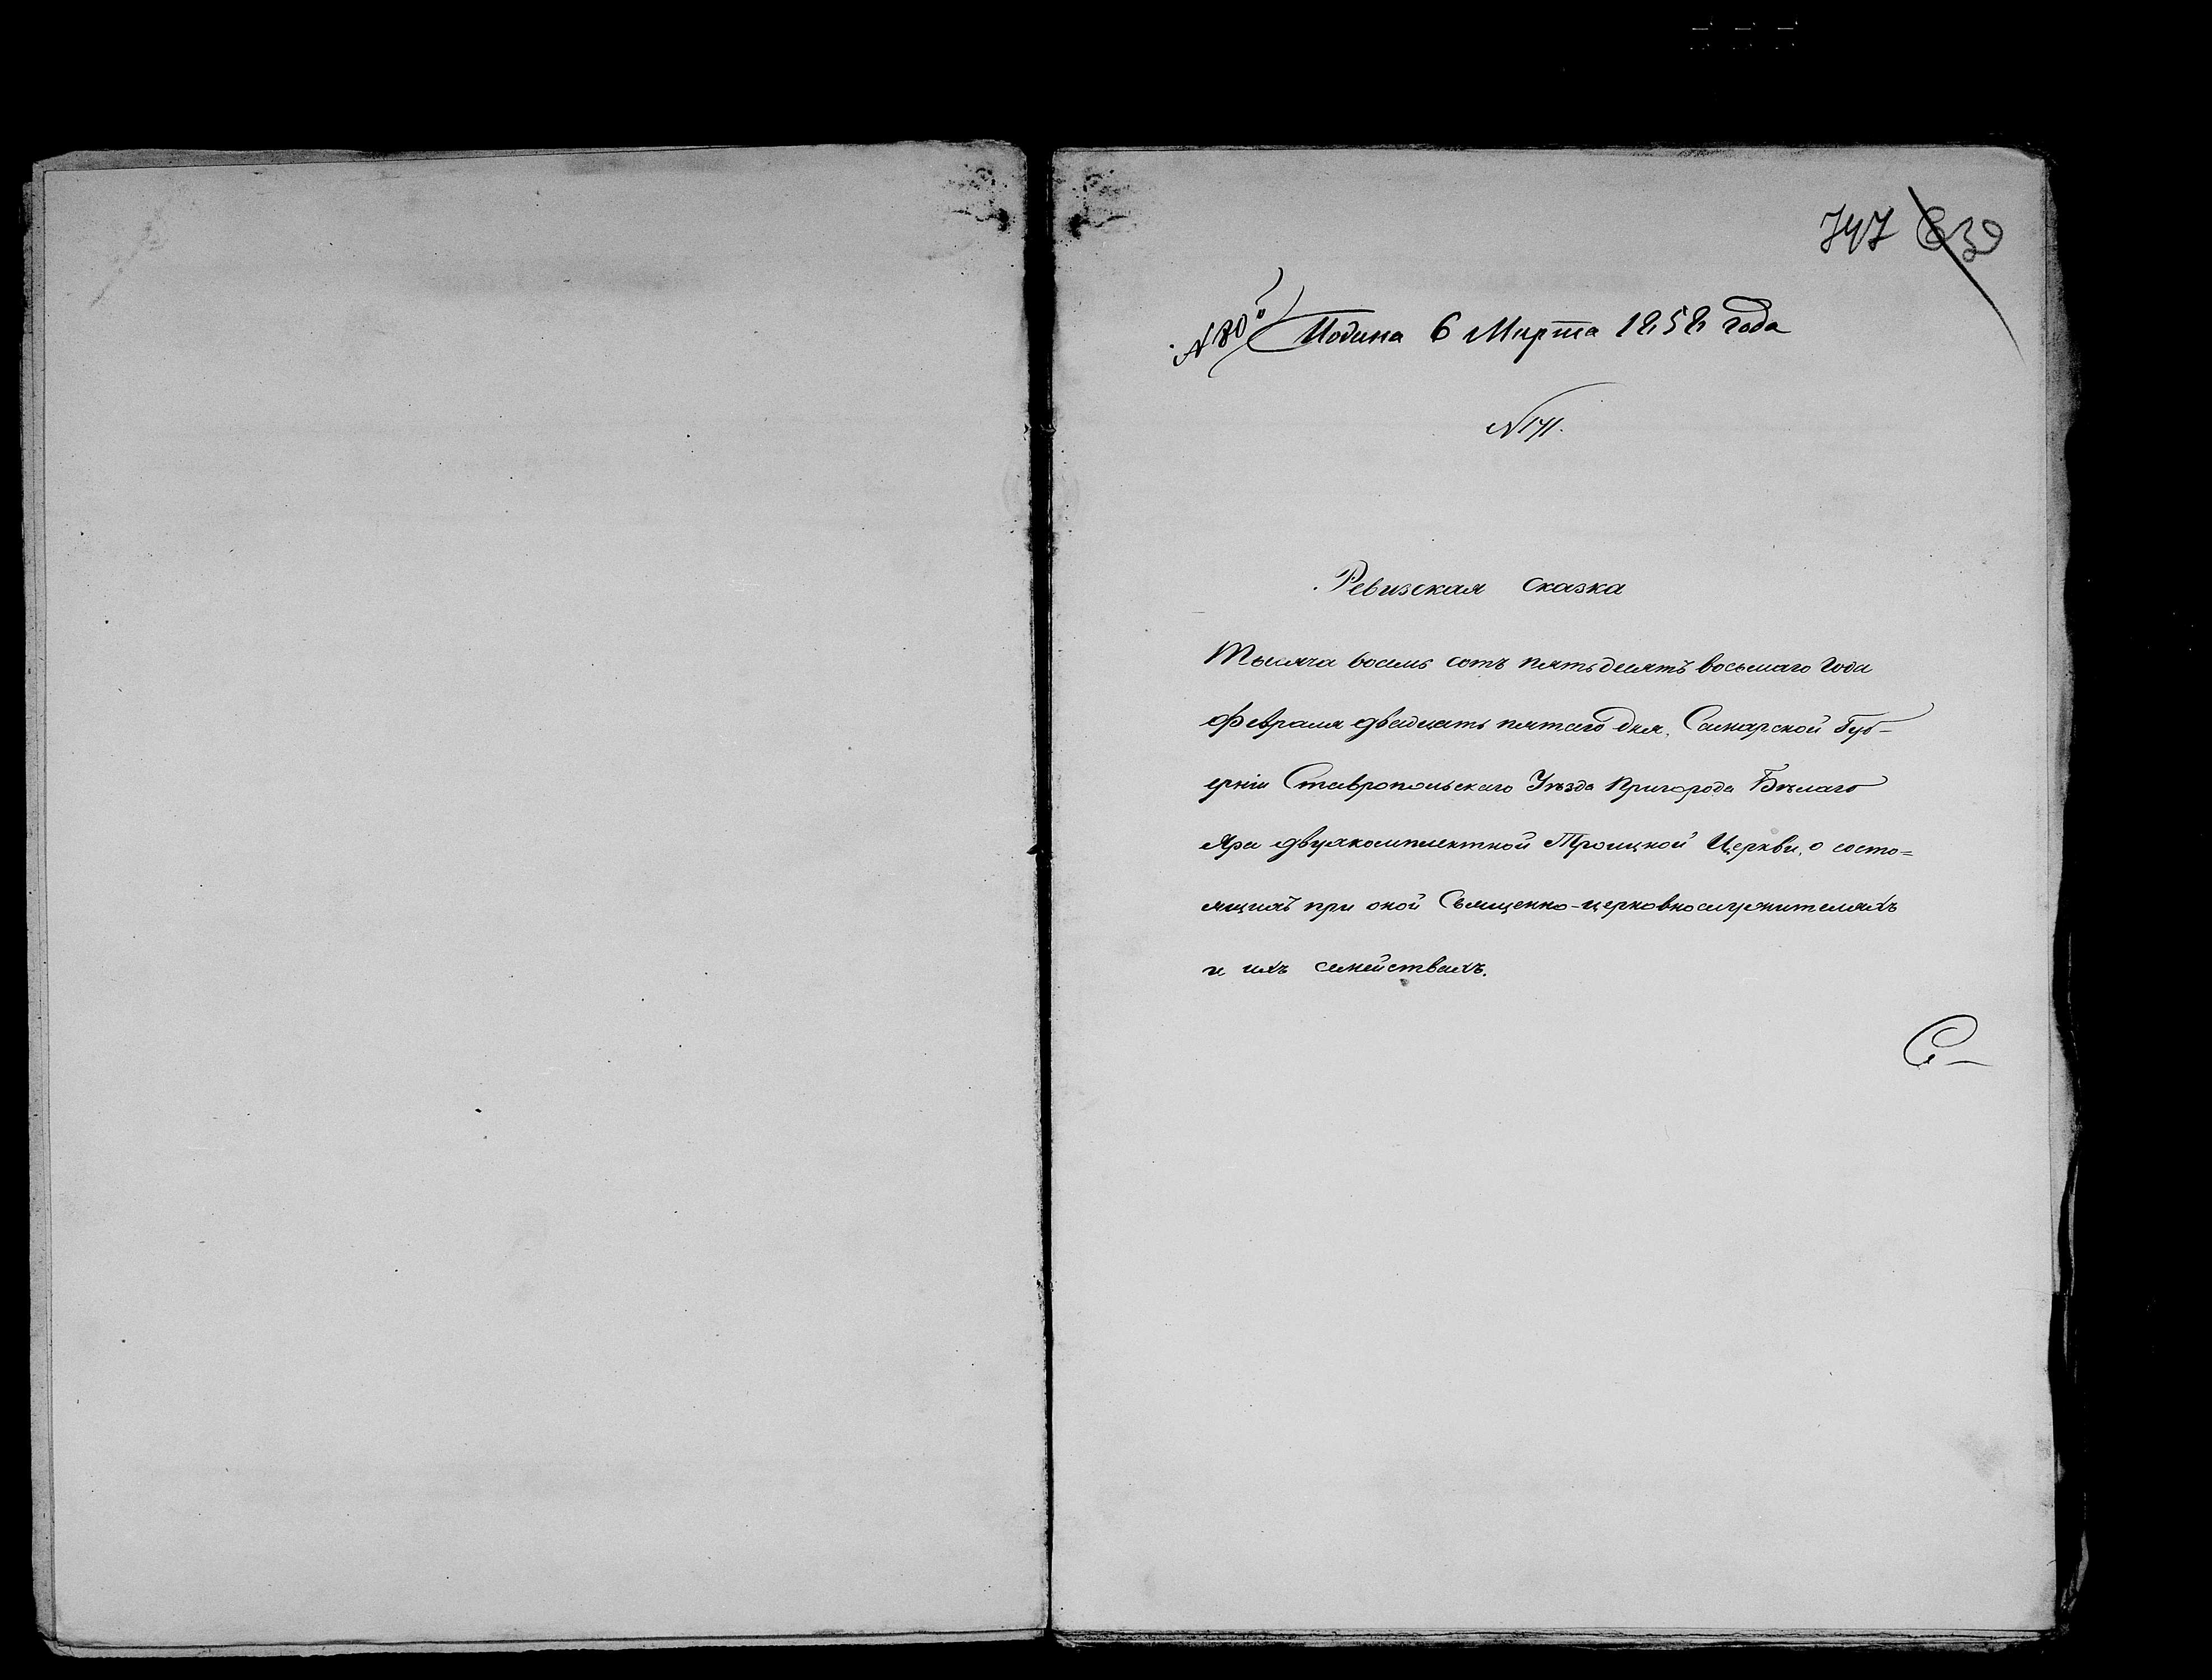 747
№ 80
Подана 6 Марта 1858 года
№ 171.
Ревизская сказка
Тысяча восемь сотъ пятьдесятъ восьмаго года
февраля двадцать пятаго дня, Самарской Губ-
ерніи Ставропольскаго Уѣзда Пригорода Бѣлаго
Яра двухкомплектной Троицкой Церкви, о состо=
ящихъ при оной Священно-церковнослужителяхъ
и ихъ семействахъ.